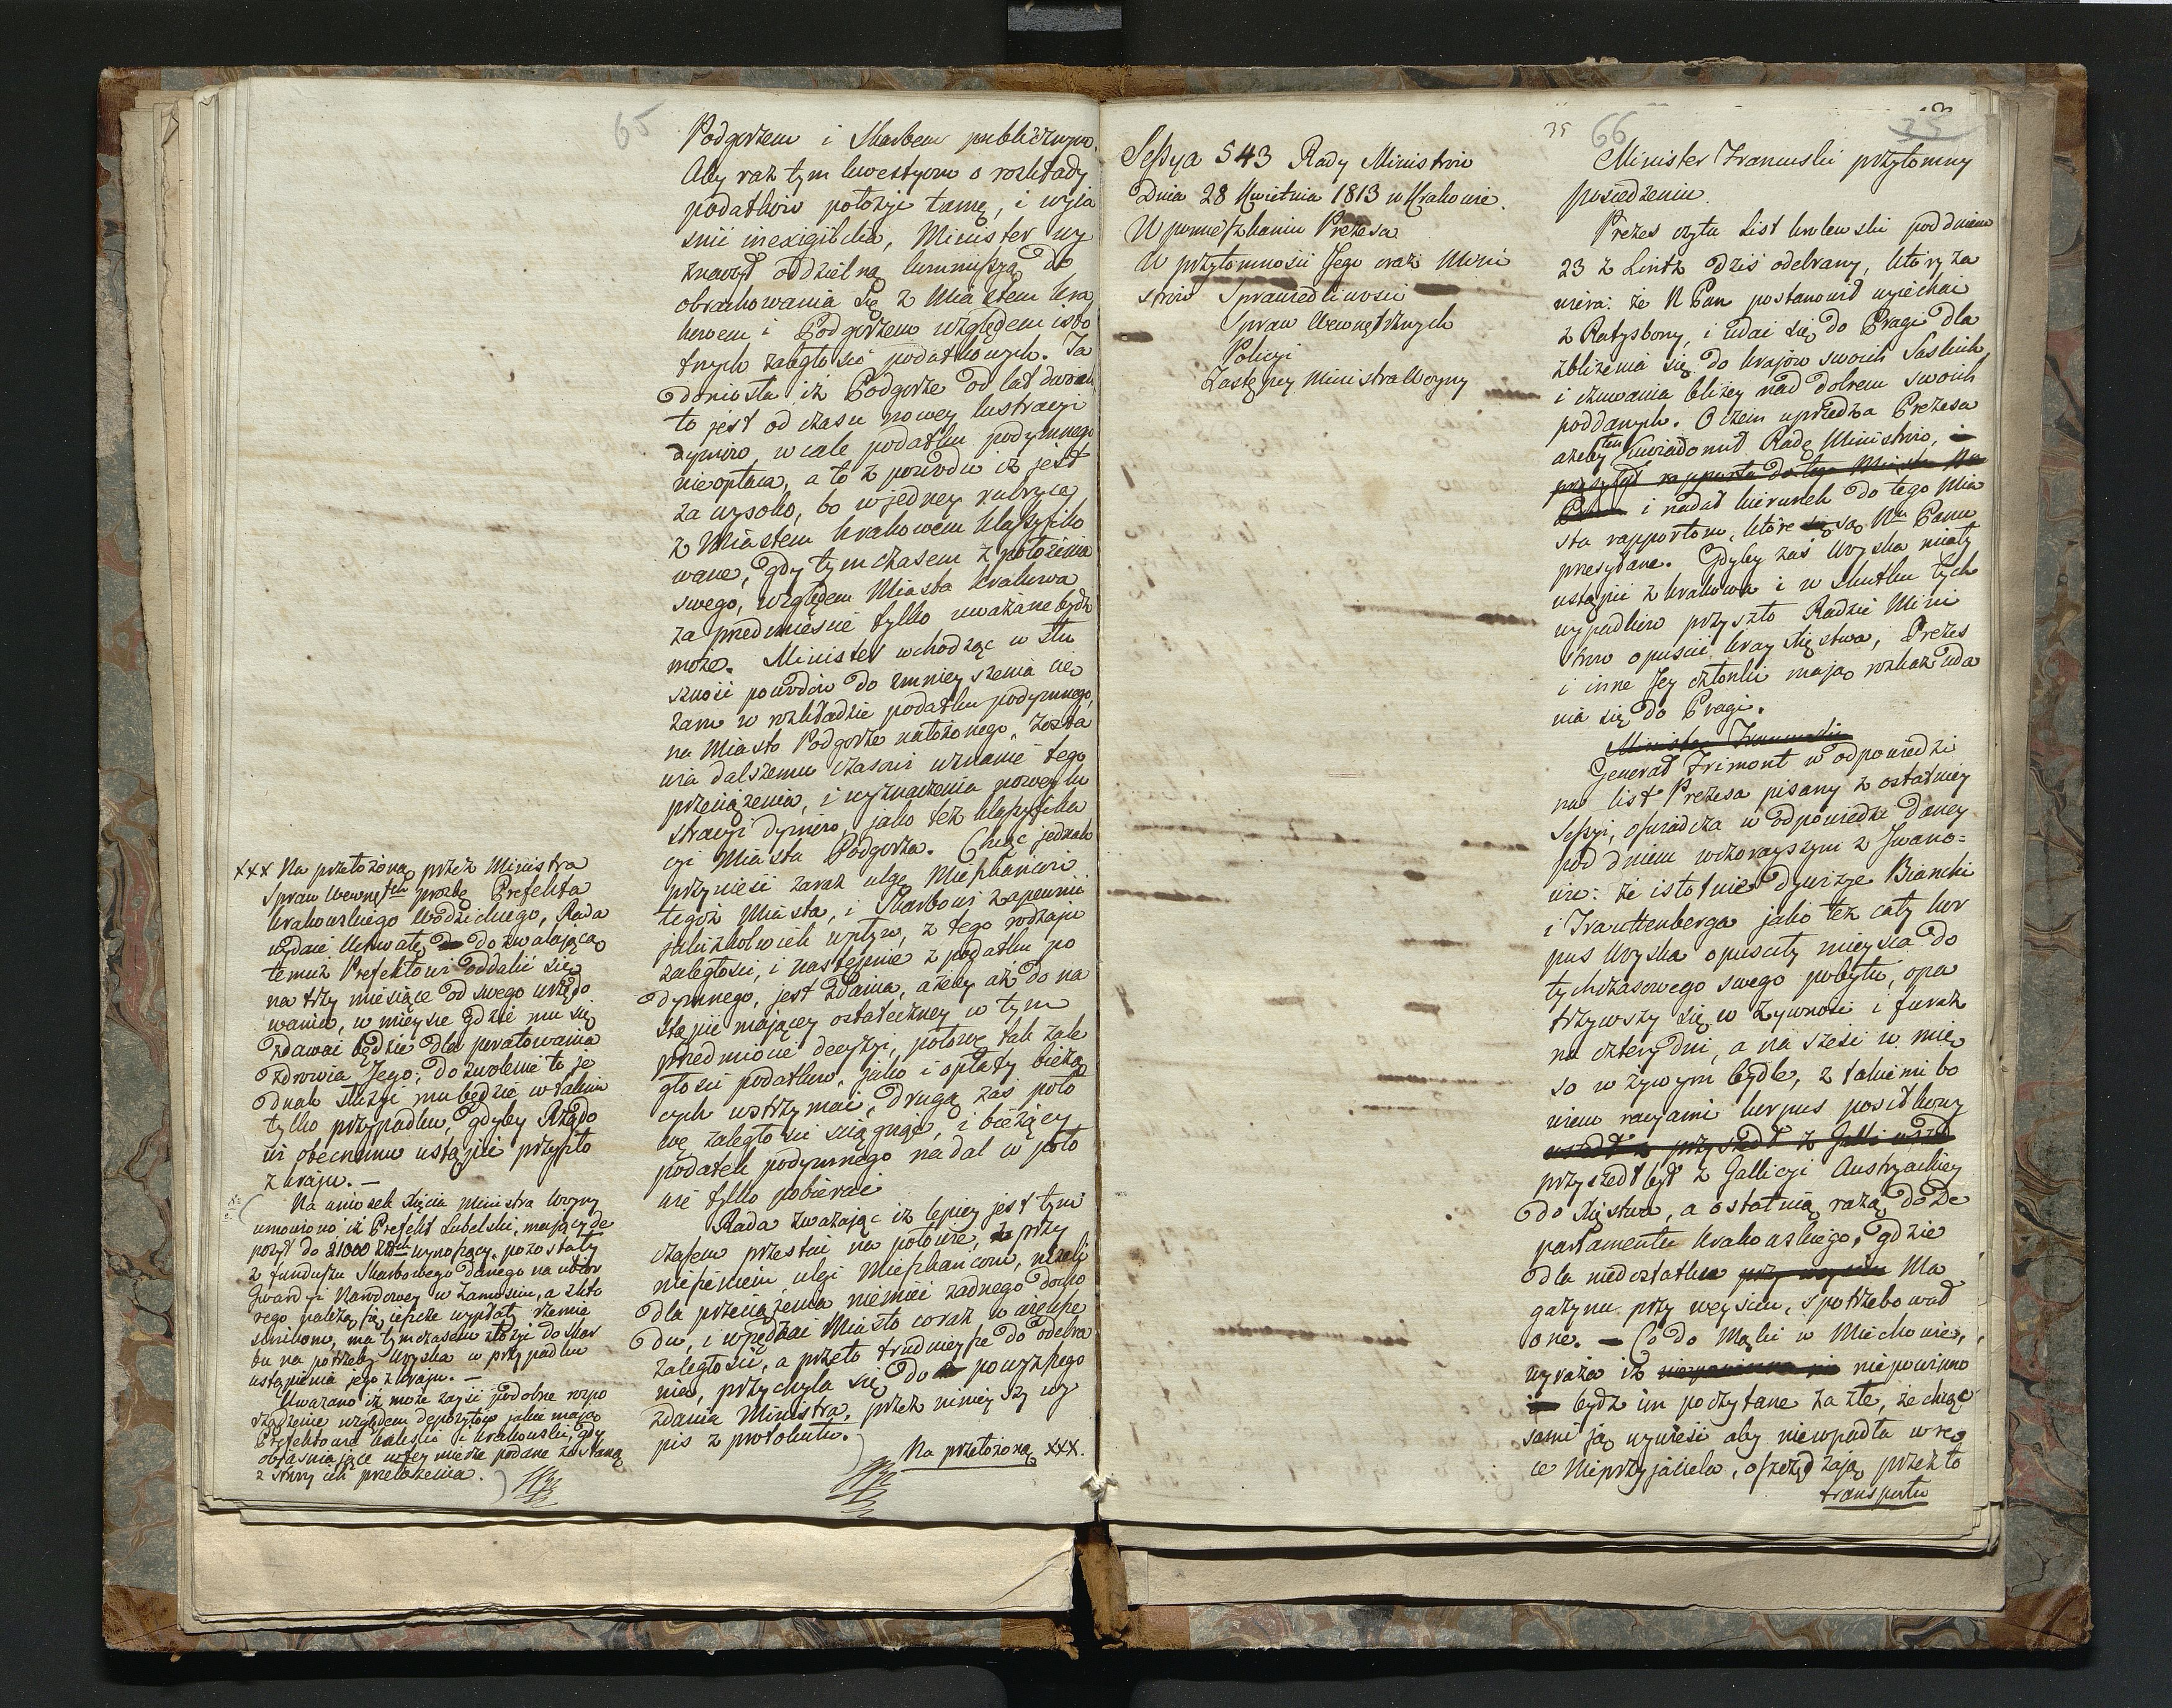 65
Podgorzem i Skarbem publicznym.
Aby raz tym kwestyom o rozkłady
podatków położyć tamę, i wyja
snić inexigibilia, Minister wy
znaczył oddzielną kommissyą do
obrachowania się z Miastem Kra
kowem i Podgorzem względem isto
tnych zaległości podatkowych. Ta
doniosła iż Podgorze od lat dwóch
to jest od czasu nowey lustracyi
dymów, wcale podatku podymnego
nieopłaca, a to z powodu iż jest
za wysoko, bo w jedney rubryce
z Miastem Krakowem klassyfiko
wane, gdy tymczasem z położenia
swego, względem Miasta Krakowa
za przedmieście tylko uważane bydź
może. Minister wchodząc w słu
szność powodów do zmnieyszenia cię
żaru w rozkładzie podatku podymnego,
na Miasto Podgorze nałożonego, zosta
wia dalszemu czasowi uznanie tego
przeciążenia, i wyznaczenia nowey lu
stracyi dymów, jako też klassyfika
cyi Miasta Podgorza. Chcąc jednak
przynieść zaraz ulgę Mieszkańcom
tegoż Miasta, i Skarbowi zapewnić
jakiżkolwiek wpływ, z tego rodzaju
zaległości, i następnie z podatku po
dymnego, jest zdania, ażeby aż do na
stąpić mającey ostateczney w tym
przedmiocie decyzyi, połowę tak zale
głości podatków, jako i opłaty bieżą
cych wstrzymać, drugą zaś poło
wę zaległości ściągnąć, i bieżący
podatek podymnego nadal w poło
wie tylko pobierać
Rada zważając iż lepiey jest tym
czasem przestać na połowie, przy
niesieniem ulgi Mieszkańcom, niżeli
dla przeciążenia niemieć żadnego docho
du, i wpędzać Miasto coraz w większe
zaległości, a przeto trudnieysze do odebra
nia, przychyla się do powyższego
zdania Ministra, przez ninieyszy wy
pis z protokułu.
Na przełożoną xxx.
xxx Na przełożoną przez Ministra
Spraw Wewnętch prozbę Prefekta
Krakowskiego Wodzickiego, Rada
wydaie Uchwałę dozwalającą
temuż Prefektowi oddalić się
na trzy miesiące od swego urzędo
wania, w mieysce gdzie mu się
zdawać będzie dla poratowania
zdrowia Jego; dozwolenie to je
dnak służyć mu będzie w takim
tylko przypadku, gdyby Rządo
wi obecnemu ustąpić przyszło
z kraju. —
Na wniosek Xięcia Ministra Woyny
umowiono, iż Prefekt Lubelski, mający de
pozyt do 21000 Złłch wynoszący, pozostały
z funduszu Skarbowego danego na ubior
Gwardyi Narodowey w Zamosciu, a z któ
rego należą się jeszcze wypłaty rzemie
slnikom, ma tymczasem złożyć do Skar
bu na potrzeby Woyska w przypadku
ustąpienia jego z kraju. —
Uważano iż może zayść podobne rozpo
rządzenie względem depozytów jakie mają
Prefektowie Kaliski i Krakowski, gdy
objasniające w tey mierze podane zostaną
z strony ich przełożenia.
35 66 35
Sessya 543 Rady Ministrów
Dnia 28 Kwietnia 1813 w Krakowie.
W pomieszkaniu Prezesa
W przytomności Jego oraz Mini
strów Sprawiedliwości
Spraw Wewnętrznych
Policyi
Zastępcy Ministra Woyny
Minister Francuski przytomny
posiedzeniu.
Prezes czyta List królewski pod dniem
23 z Lintz dziś odebrany, który za
wiera: że N Pan postanowił wyjechać
z Ratysbony, i udać się do Pragi dla
zbliżenia się do krajów swoich Saskich,
i czuwania bliżey nad dobrem swoich
poddanych. O czem uprzedza Prezesa
ażeby ten uwiadomił Radę Ministrów, i
przesyłał rapporta do tego Miasta
i nadał kierunek do tego Mia
sta rapportom, które są Nu Panu
przesyłane. Gdyby zaś Woyska miały
ustąpić z Krakowa i w skutku tych
wypadków przyszło Radzie Mini
strów opuścić kray Xięstwa, Prezes
i inne Jey członki mają rozkaz uda
nia się do Pragi.
Minister Francuski
Generał Frimont w odpowiedzi
na list Prezesa pisany z ostatniey
Sessyi, oświadcza w odpowiedzi daney
pod dniem wczorayszym z Iwano=
wic: że istotnie dywizye Bianchi
i Trauttenberga jako też cały kor
pus Woyska opuściły mieysca do
tychczasowego swego pobytu, opa
trzywszy się w żywność i furaż
na cztery dni, a na sześć w mię
so w żywym bydle, z takiemi bo
wiem racyami korpus posiłkowy
przyszedł z
przyszedł był z Gallicyi Austryackiey
do Xięstwa, a ostatnią razą do De
partamentu Krakowskiego, gdzie
dla niedostatku Ma
gazynu przy weyściu, spotrzebował
one. — Co do Mąki w Miechowie,
wyraża iż niepowinno
bydź im poczytane za złe, że chcąc
sami ją wywieść aby niewpadła w rę
ce Nieprzyjaciela, oszczędzają przez to
transportu